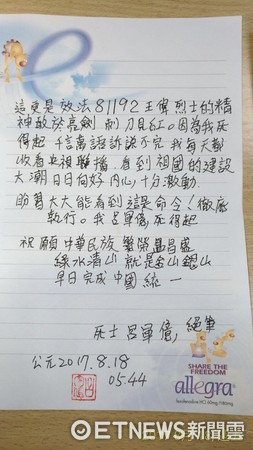 這更是放法81192王偉烈士的精
神敢於亮劍刺刀見紅。因為我死
得起 千言萬語訴說不完 我每天都
收看央視聯播.看到祖國的建設
大潮日日向好 內心,十分激動.
盼習大大能看到這是命令!徹底
執行。我呂軍億死得起
祝願中華民族繁榮昌盛
綠水清山 就是金山銀山
早日完成中國統一
死士呂軍億,絕筆
公元2017.8.18
05:44
SHARE THE
FREEDOM
allegra
fexofenadine HCl 60mg /180mg
ETNEWS新聞雲